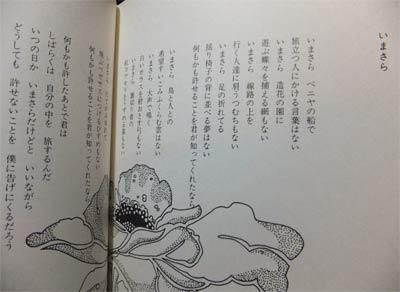 いまさら
いまさら ベニヤの船で
旅立つ人にかける言葉はない
いまさら 造花の園に
遊ぶ蝶々を捕える網もない
いまさら 線路の上を
行く人達に肩うつむちもない
いまさら 足の折れてる
揺り椅子の背に並べる夢はない
何もかも許せることを君が知ってくれたなら
いまさら 鳥と人との
希望すいこみふくらむ雲はない
いまさら 大声で鳴く
いまさら 裏切り者の
何もかも許せることを君が知ってくれたなら
何もかも許したあとで君は
しばらくは 自分の中を 旅するんだ
いつの日か いまさらだけど と いいながら
どうしても 許せないことを 僕に告げにくるだろう